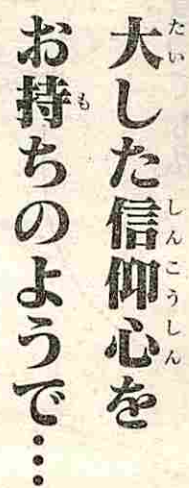 大した信仰心を
お持ちのようで…